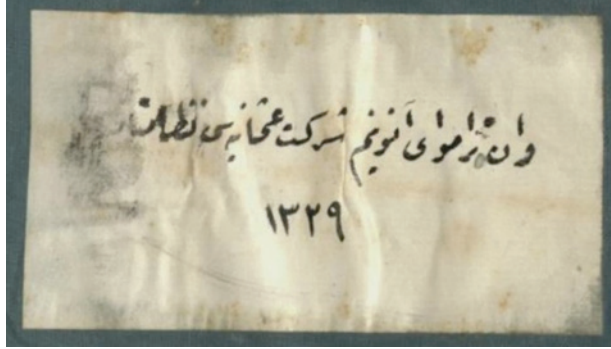 وان تراموای آنونیم شرکت عثمانیه‌سی نظامنامه‌
١٣٢٩